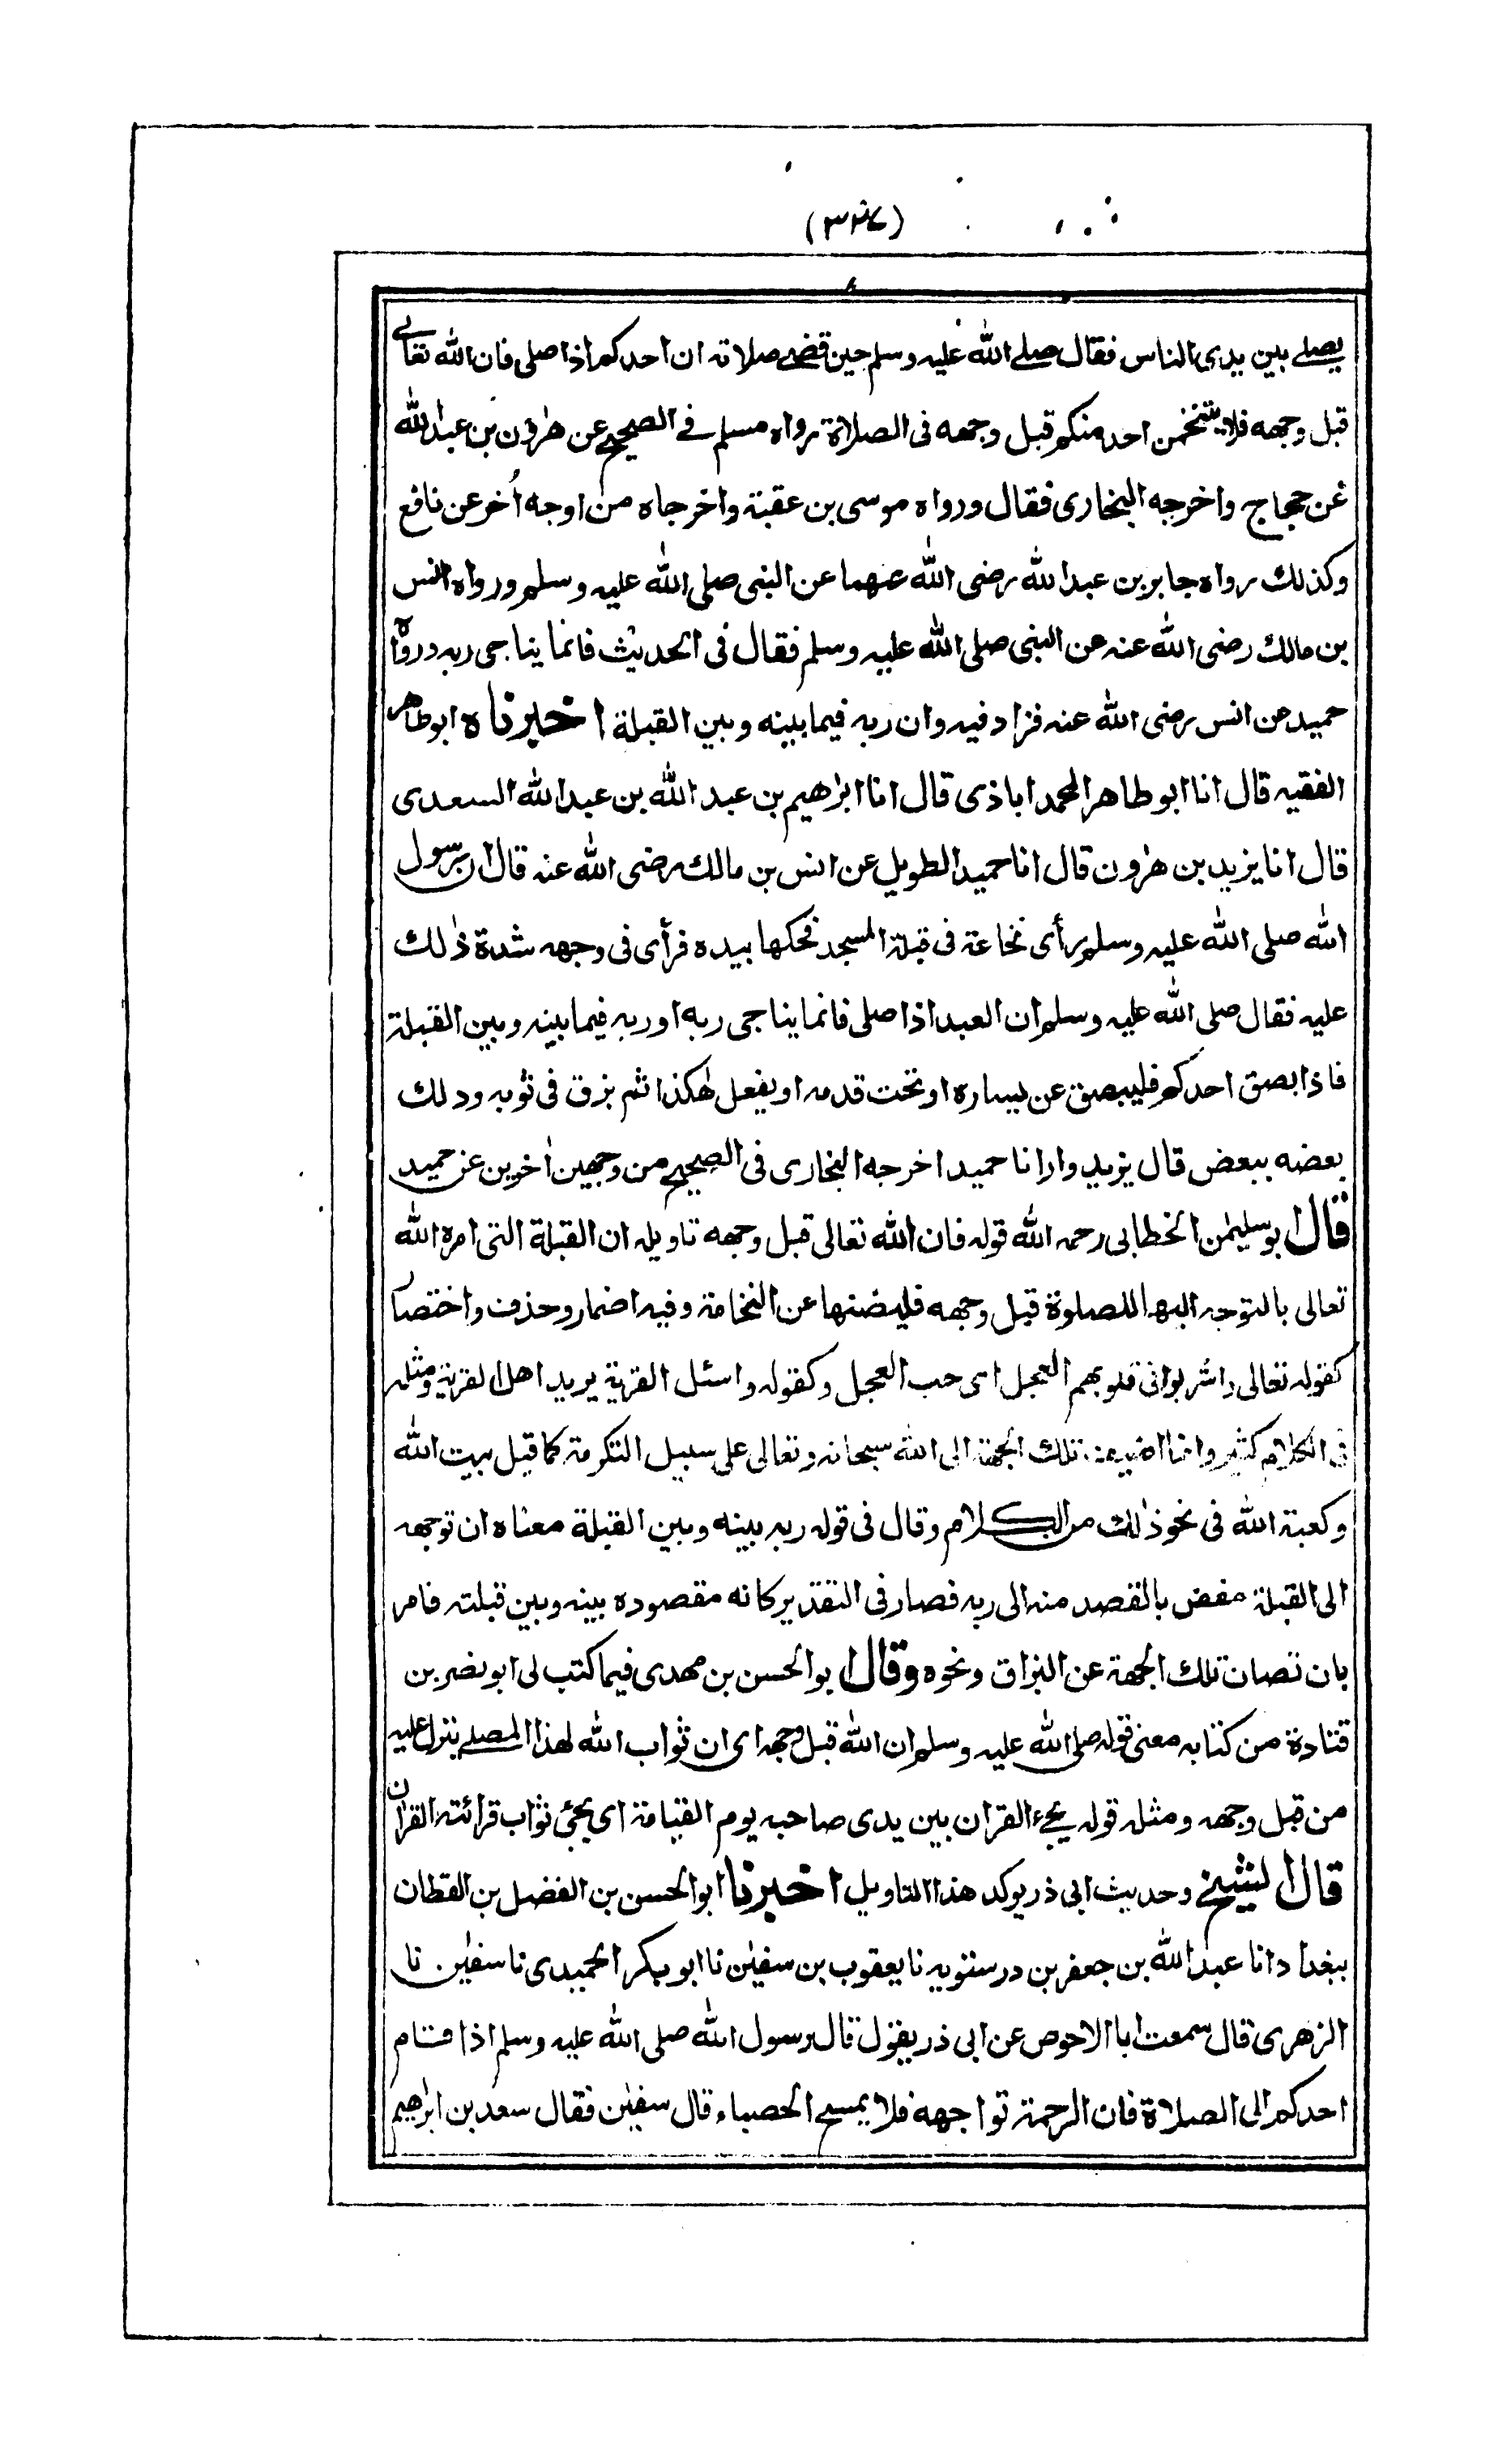 (٣٢٧)
يصلے بين يدى الناس فقال صلے الله عليه وسلم حين قضے صلاته ان احدكم اذا صلى فان الله تعالے
قبل وجهه فلا يتنخمن احد منكم قبل وجهه فى الصلاة رواه مسلم فے الصحيح عن هٰرون بن عبد الله
عن حجاج واخرجه البخارى فقال ورواه موسى بن عقبة واخرجاه من اوجه اُخر عن نافع
وكذلك رواه جابر بن عبد الله رضى الله عنهما عن النبى صلى الله عليه وسلم ورواه انس
بن مالك رضى الله عنه عن النبى صلى الله عليه وسلم فقال فى الحديث فانما يناجى ربه ورواه
حميد عن انس رضى الله عنه فزاد فيه وان ربه فيما بينه وبين القبلة اخبرناه ابو طاهر
الفقيه قال انا ابو طاهر المحمداباذى قال انا ابرٰهيم بن عبد الله بن عبد الله السعدى
قال انا يزيد بن هٰرون قال انا حميد الطويل عن انس بن مالك رضى الله عنه قال ان رسول
الله صلى الله عليه وسلم رأى نخاعة فى قبلة المسجد فحكها بيده فرأى فى وجهه شدة ذٰلك
عليه فقال صلى الله عليه وسلم ان العبد اذا صلى فانما يناجى ربه او ربه فيما بينه وبين القبلة
فاذا بصق احدكم فليبصق عن يساره او تحت قدمه او يفعل هٰكذا ثم بزق فى ثوبه ودلك
بعضه ببعض قال يزيد وارانا حميد اخرجه البخارى فى الصحيح من وجهين اٰخرين عن حميد
قال ابو سليمٰن الخطابى رحمه الله قوله فان الله تعالى قبل وجهه تاويله ان القبلة التى امره الله
تعالى بالتوجه اليها للصلوة قبل وجهه فليصنها عن النخامة وفيه اضمار وحذف واختصار
كقوله تعالى واشربوا فى قلوبهم العجل اى حب العجل وكقوله واسئل القرية يريد اهل القرية ومثله
فى الكلام كثير وانما اضيفت تلك الجهة الى الله سبحانه وتعالى على سبيل التكرمة كما قيل بيت الله
وكعبة الله فى نحو ذٰلك من الكلام وقال فى قوله ربه بينه وبين القبلة معناه ان توجهه
الى القبلة مفض بالقصد منه الى ربه فصار فى التقدير كانه مقصوده بينه وبين قبلته فامر
بان تصان تلك الجهة عن البزاق ونحوه وقال ابو الحسن بن مهدى فيما كتب لى ابو نصر بن
قتادة من كتابه معنى قوله صلى الله عليه وسلم ان الله قبل وجهه اى ان ثواب الله لهذا المصلے ينزل عليه
من قبل وجهه ومثله قوله يجىء القران بين يدى صاحبه يوم القيامة اى يجئ ثواب قرائته القران
قال الشيخ وحديث ابى ذر يوكد هذا التاويل اخبرنا ابو الحسن بن الفضل بن القطان
ببغداد انا عبد الله بن جعفر بن درستويه نا يعقوب بن سفيٰن نا ابو بكر الحميدى نا سفيٰن نا
الزهرى قال سمعت ابا الاحوص عن ابى ذر يقول قال رسول الله صلى الله عليه وسلم اذا قام
احدكم الى الصلاة فان الرحمة تواجهه فلا يمسح الحصباء قال سفيٰن فقال سعد بن ابرٰهيم